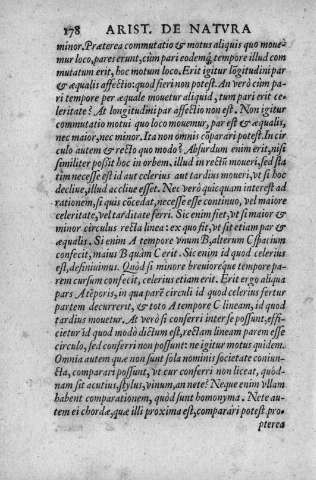 178 ARIST. DE NATVRA
minor. Præterea commutatio & motus aliquis quo mouemur loco, pares erunt, cùm pari eodemq́; tempore illud commutatum erit, hoc motum loco. Erit igitur lōgitudini par
& æqualis affectio: quod fieri non potest. An verò cùm pari tempore per æquale mouetur aliquid, tum pari erit celeritate? At longitudini par affectio non est. Non igitur
commutatio motui quo loco mouemur, par est & æqualis,
nec maior, nec minor. Ita non omnis cōparari potest. In circulo autem & recto quo modo? Absurdum enim erit, nisi
similiter possit hoc in orbem, illud in rectū moueri, sed statim necesse est id aut celerius aut tardius moueri, vt si hoc
decliue, illud accliue esset. Nec verò quicquam interest ad
rationem, si quis cōcedat, necesse esse continuo, vel maiore
celeritate, vel tarditate ferri. Sic enim fiet, vt si maior &
minor circulus recta linea: ex quo fit, vt sit etiam par &
æqualis. Si enim A tempore vnum B, alterum C spacium
confecit, maius B quàm C erit. Sic enim id quod celerius
est, definiuimus. Quòd si minore breuioreque tempore parem cursum confecit, celerius etiam erit. Erit ergo aliqua
pars A tēporis, in qua parē circuli id quod celerius fertur
partem decurrerit, & toto A tempore C lineam, id quod
tardius mouetur. At verò si conferri inter se possunt, efficietur id quod modò dictum est, rectam lineam parem esse
circulo, sed conferri non possunt: ne igitur motus quidem.
Omnia autem quæ non sunt sola nominis societate coniuncta, comparari possunt, vt cur conferri non liceat, quódnam sit acutius, stylus, vinum, an nete? Neque enim vllam
habent comparationem, quòd sunt homonyma. Nete autem ei chordæ, quæ illi proxima est, comparari potest pro-
pterea